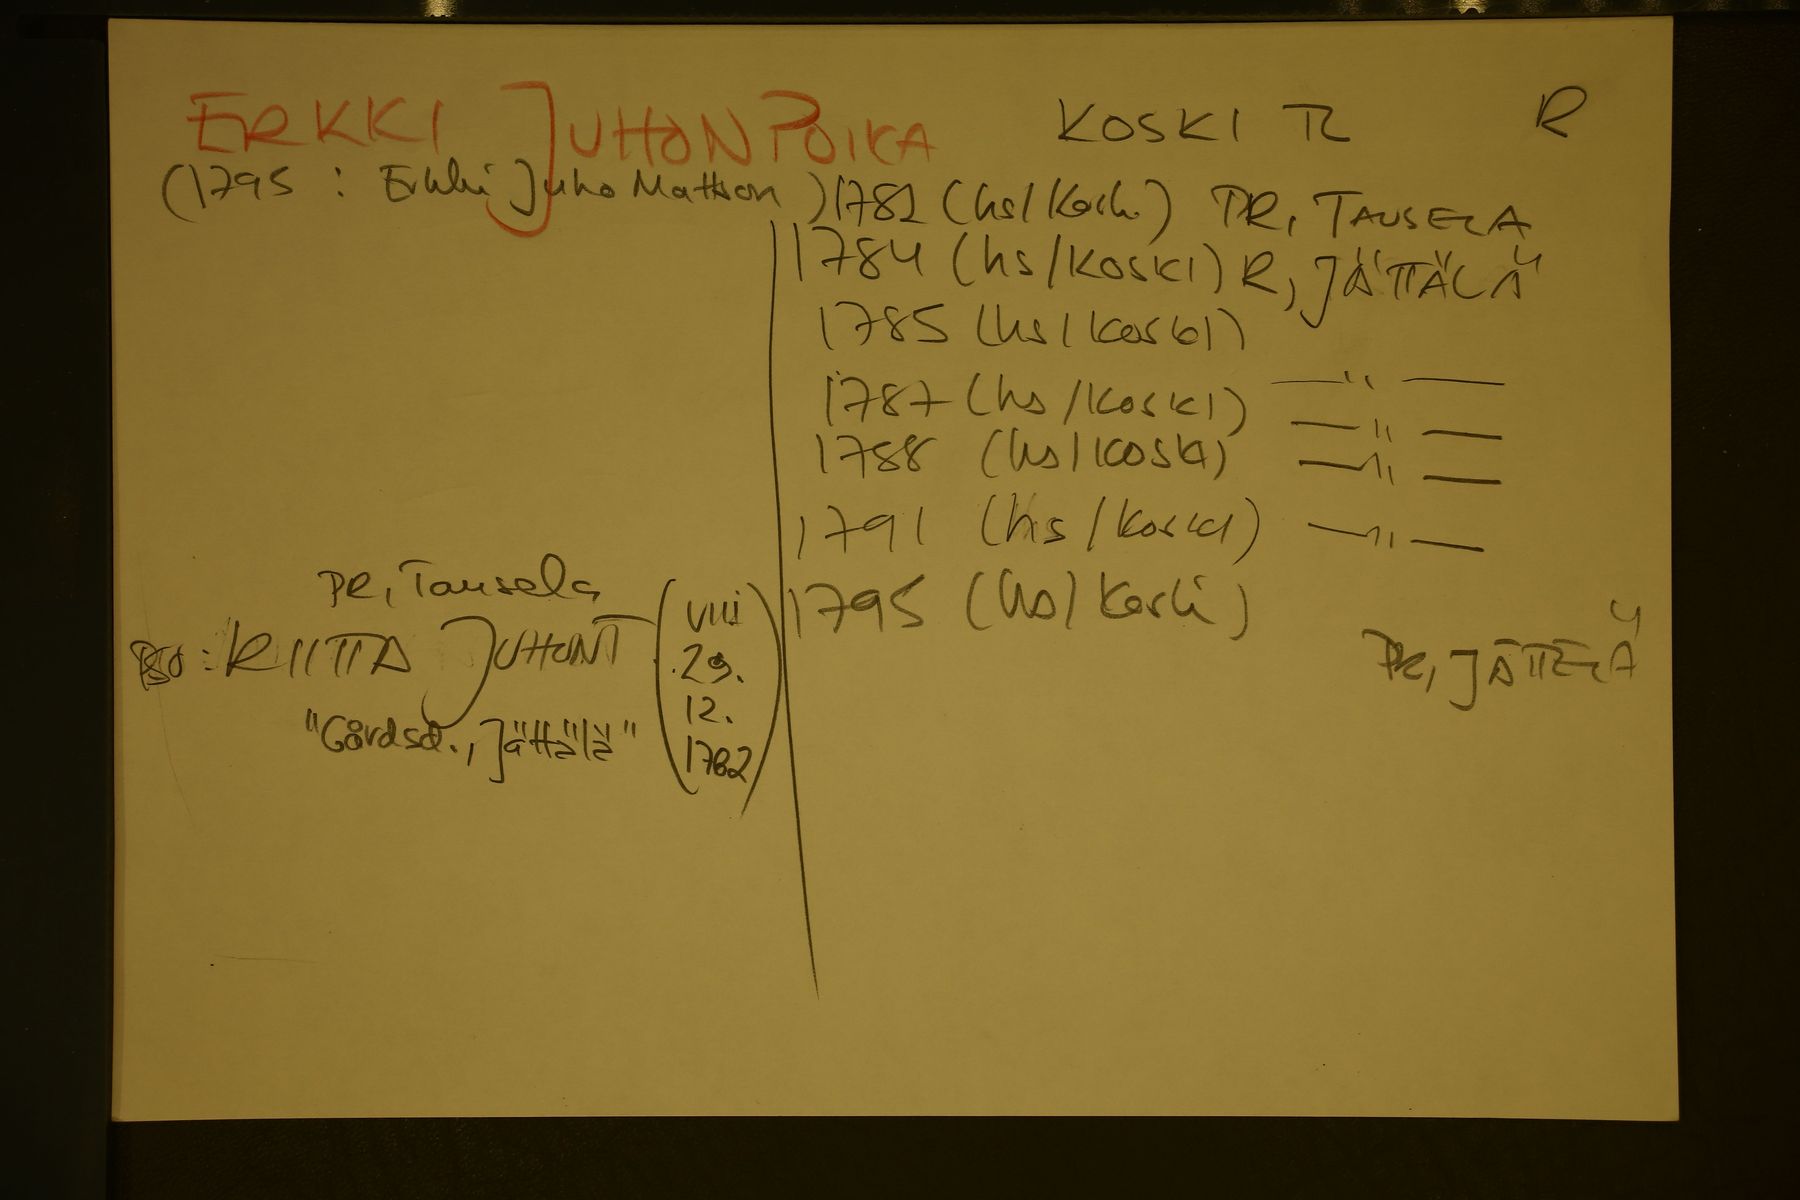 ERKKI JUHONPOIKA KOSKI TL R
(1795 : Erkki Juho Mattson)
1782 (hs/Koski) PR, TAUSELA
1784 (hs/KOSKI) R, JÄTTÄLÄ
1785 (hs/Koski) —"—
1787 (hs/KOSKI) —"—
1788 (hs/KOSKI) —"—
1791 (hs/Koski) —"—
1795 (hs/Koski) PR, JÄTTELÄ
PR, Tausela
PSO: RIITTA JUHONT (VIII 29. 12. 1782)
"Gårdsd., Jättälä"